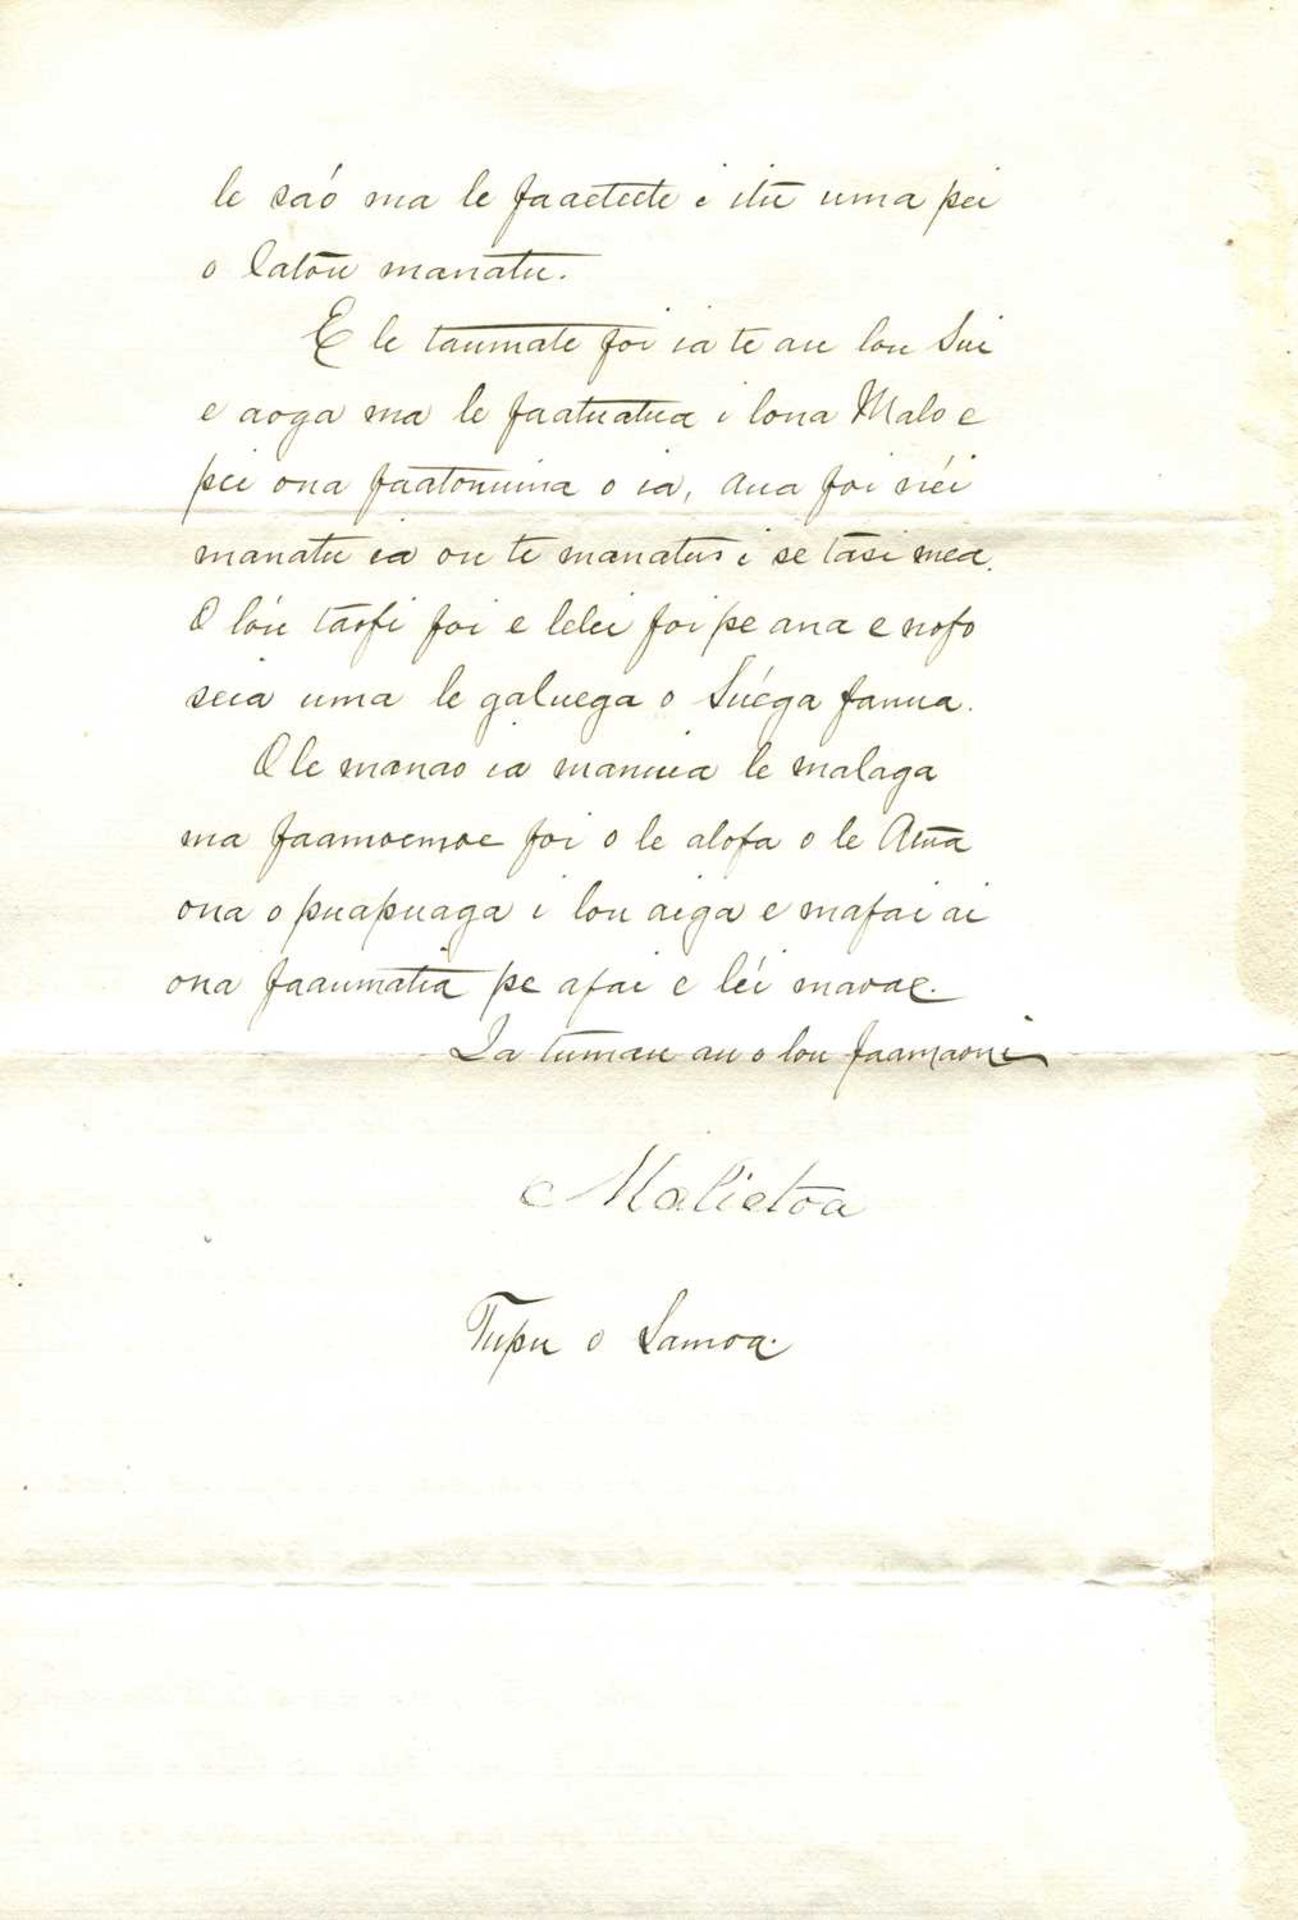 le sáo ma le faaeteete i itu uma pei
o latou manatu.
E le taumate foi ia te au lou Sui
e aoga ma le faatuatua i lona Malo e
pei ona faatonuina o ia, aua foi néi
manatu ia ou te manatu i se tasi mea.
O lóu taofi foi e lelei foi pe ana e nofo
seia uma le galuega o Súega fanua.
O le manao ia manuia le malaga
ma faamoemoe foi o le alofa o le Atua
ona o puapuaga i lou aiga e mafai ai
ona faaumatia pe afai e léi mavae.
Ia tumau au o lou faamaoni
Malietoa
Tupu o Samoa.